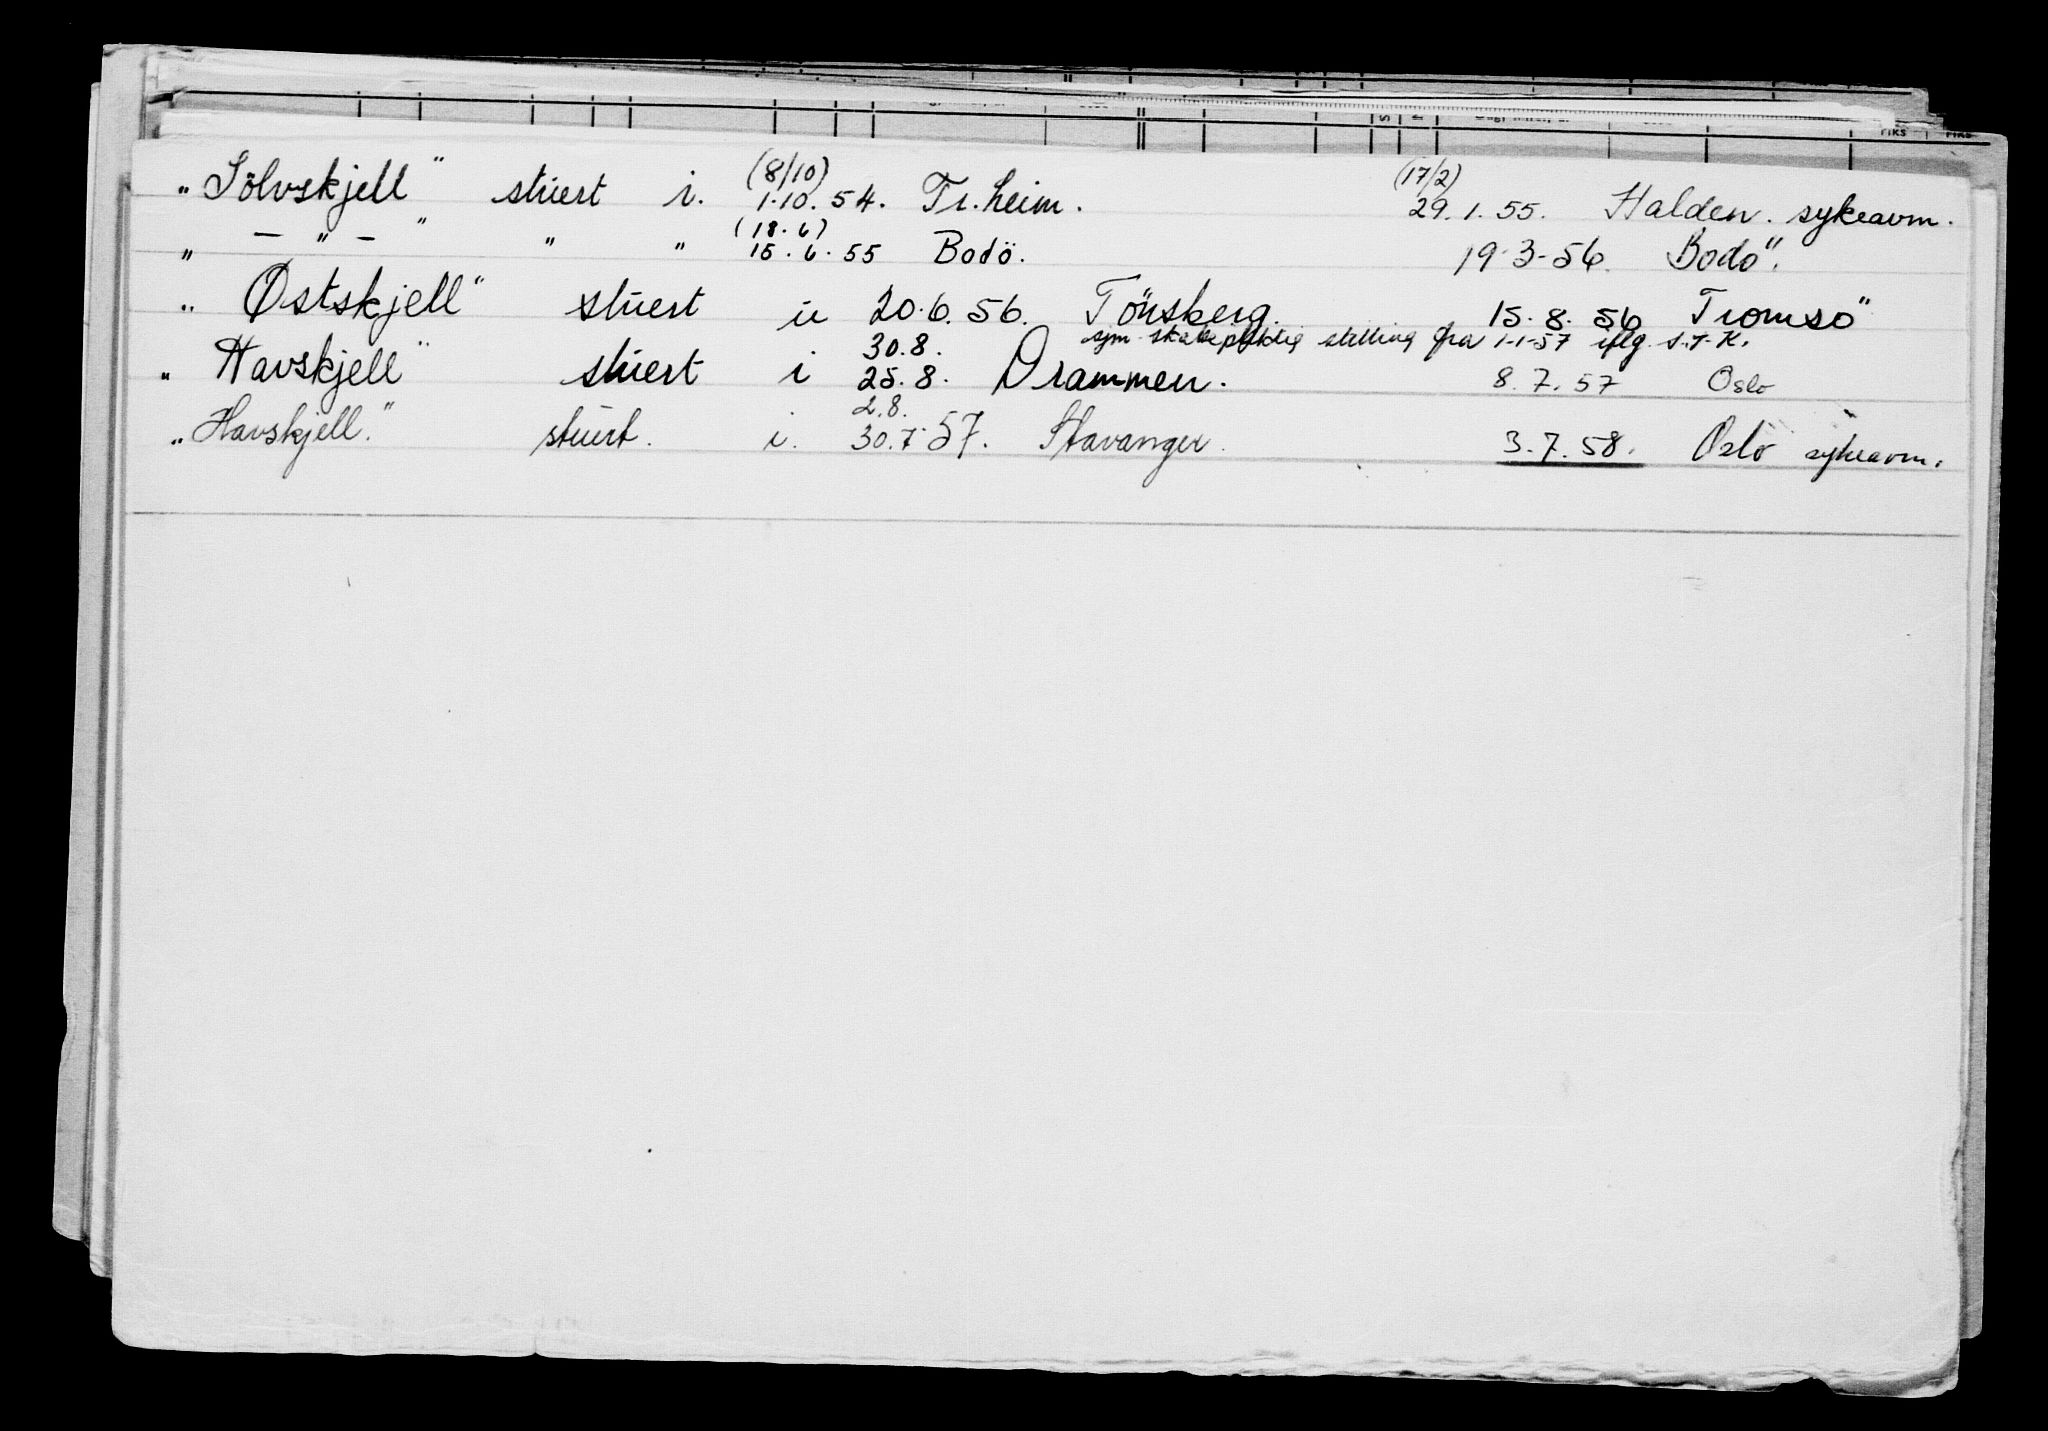 (8/10) (17/2)
„Sölvskjell" stuert i. 1.10.54. Tr.heim. 29.1.55. Halden. sykeavm.
(18.6)
„ — " — " " " 15.6.55 Bodö. 19-3-56. Bodö.
„Østskjell" stuert u 20.6.56. Tönsberg. 15.8.56 Tromsö
30.8. sjm. skattepliktig stilling fra 1-1-57 iflg. S.T.K.
„Havskjell" stuert i 25.8. Drammen. 8.7.57 Oslo
2.8.
„Havskjell." stuert. i. 30.7.57. Stavanger. 3.7.58. Oslo sykeavm.